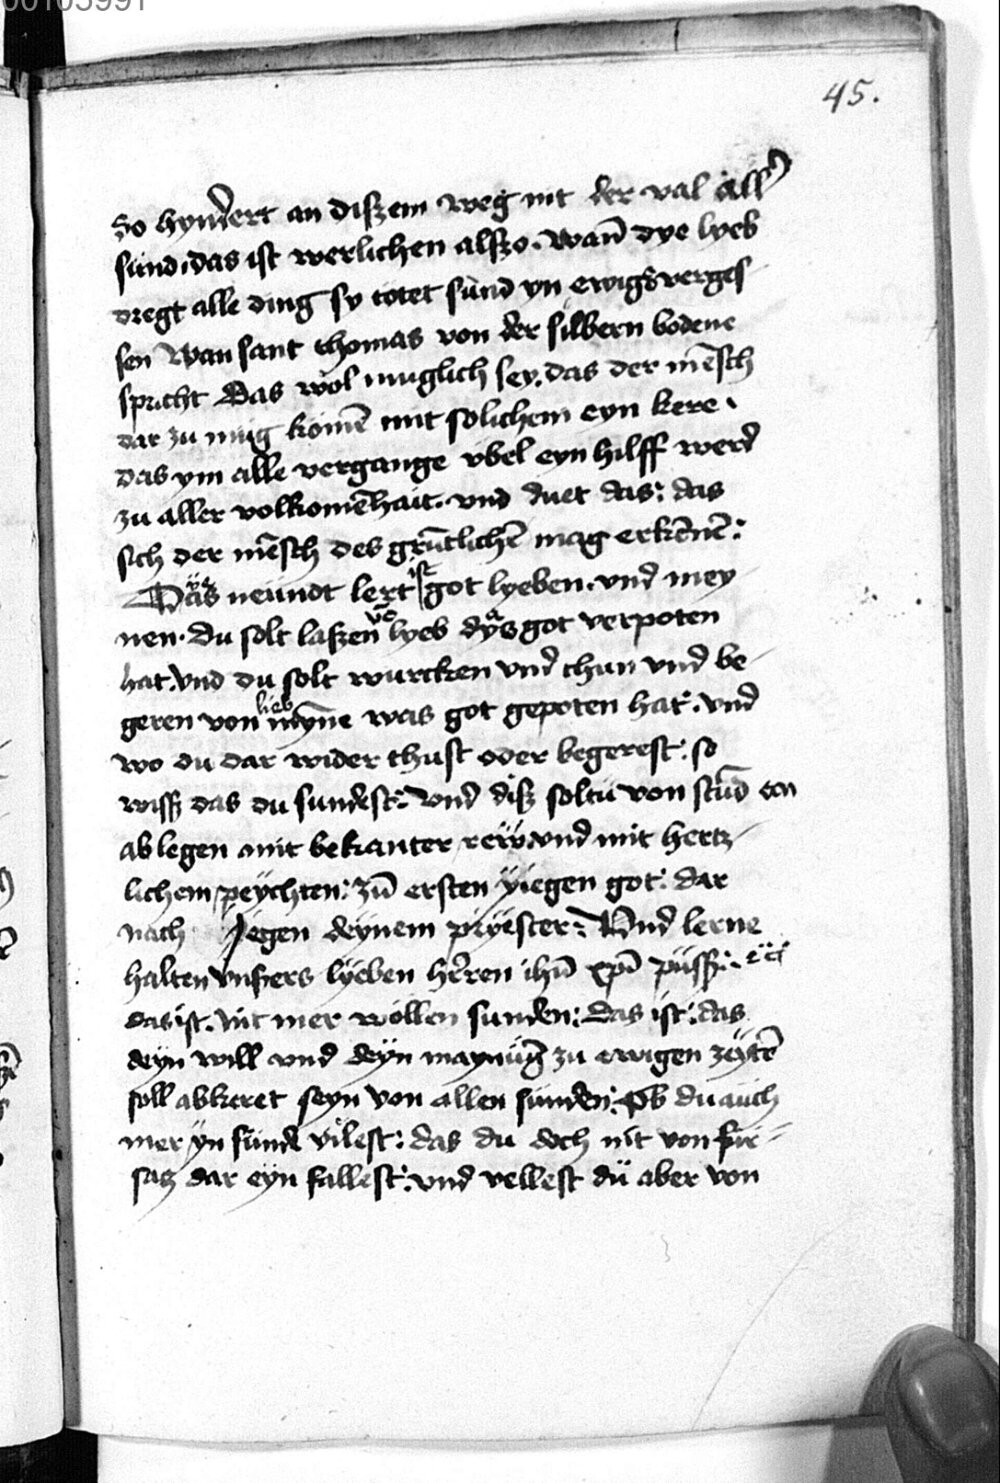 00103991
45.
So hyndert an diszem weg nit der val all̕
sund. das ist werlichen alszo. wan̄ dye lyeb
dregt alle ding sy totet sund yn ewigs verges
sen Wan sant thomas von der silbern bodene
spricht Das wol muglich sey. das der mēsch
dar zu mug komē mit solichem eyn kere.
das ym alle vergange vbel eyn hilff werd
zu aller volkomēhait. vnd duet das: das
sich der mēsch des grūtlichē mag erkēnē:
Das neündt lert ist got lyeben. vnd mey
nen. du solt laszen vō lyeb das got verpoten
hat. vnd du solt wurcken vnd thun vnd be
geren von lieb myn̄e was got gepoten hat. vnd
wo du dar wider thust oder begerest: so
wisz das du sundest: vnd disz soltu von stūd an
ablegen mit bekanter rew. vnd mit hertz
lichem peychten: zū ersten yiegen got: dar
nach jegen deynem pryester: Vnd lerne
halten vnszers lyeben herren ihū xpī pusz:
das ist. nit mer wöllen sunden: das ist: das
deyn will vnd deyn maynūg zu ewigen zeytē
soll abkeret seyn von allen sunden: Ob du auch
mer yn sunde vilest: das du doch nit von fur
satz dar eyn fallest: vnd vellest dü aber von